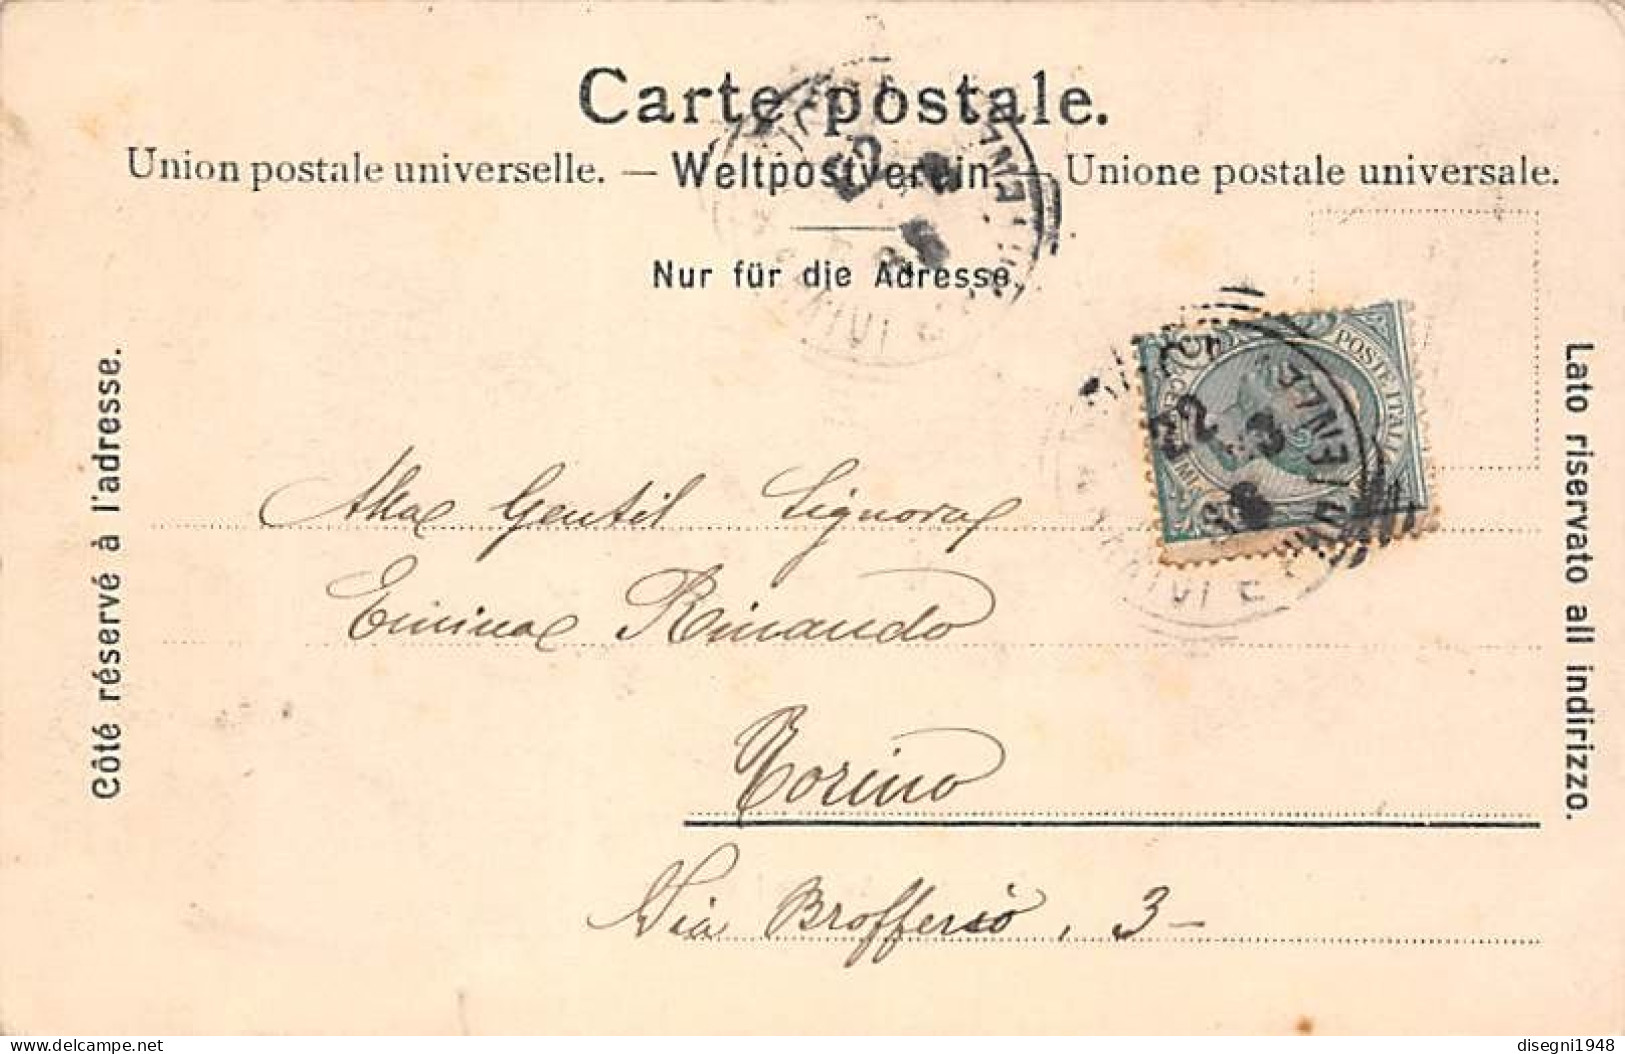 Carte postale.
Union postale universelle. — Weltpostverein. — Unione postale universale.
Nur für die Adresse.
Côté réservé à l'adresse.
Lato riservato all indirizzo.
POSTE ITALI
22
Alla Gentil Signora
Emina Rinaudo
Torino
Via Brofferio, 3 -
delcampe.net
disegni1948